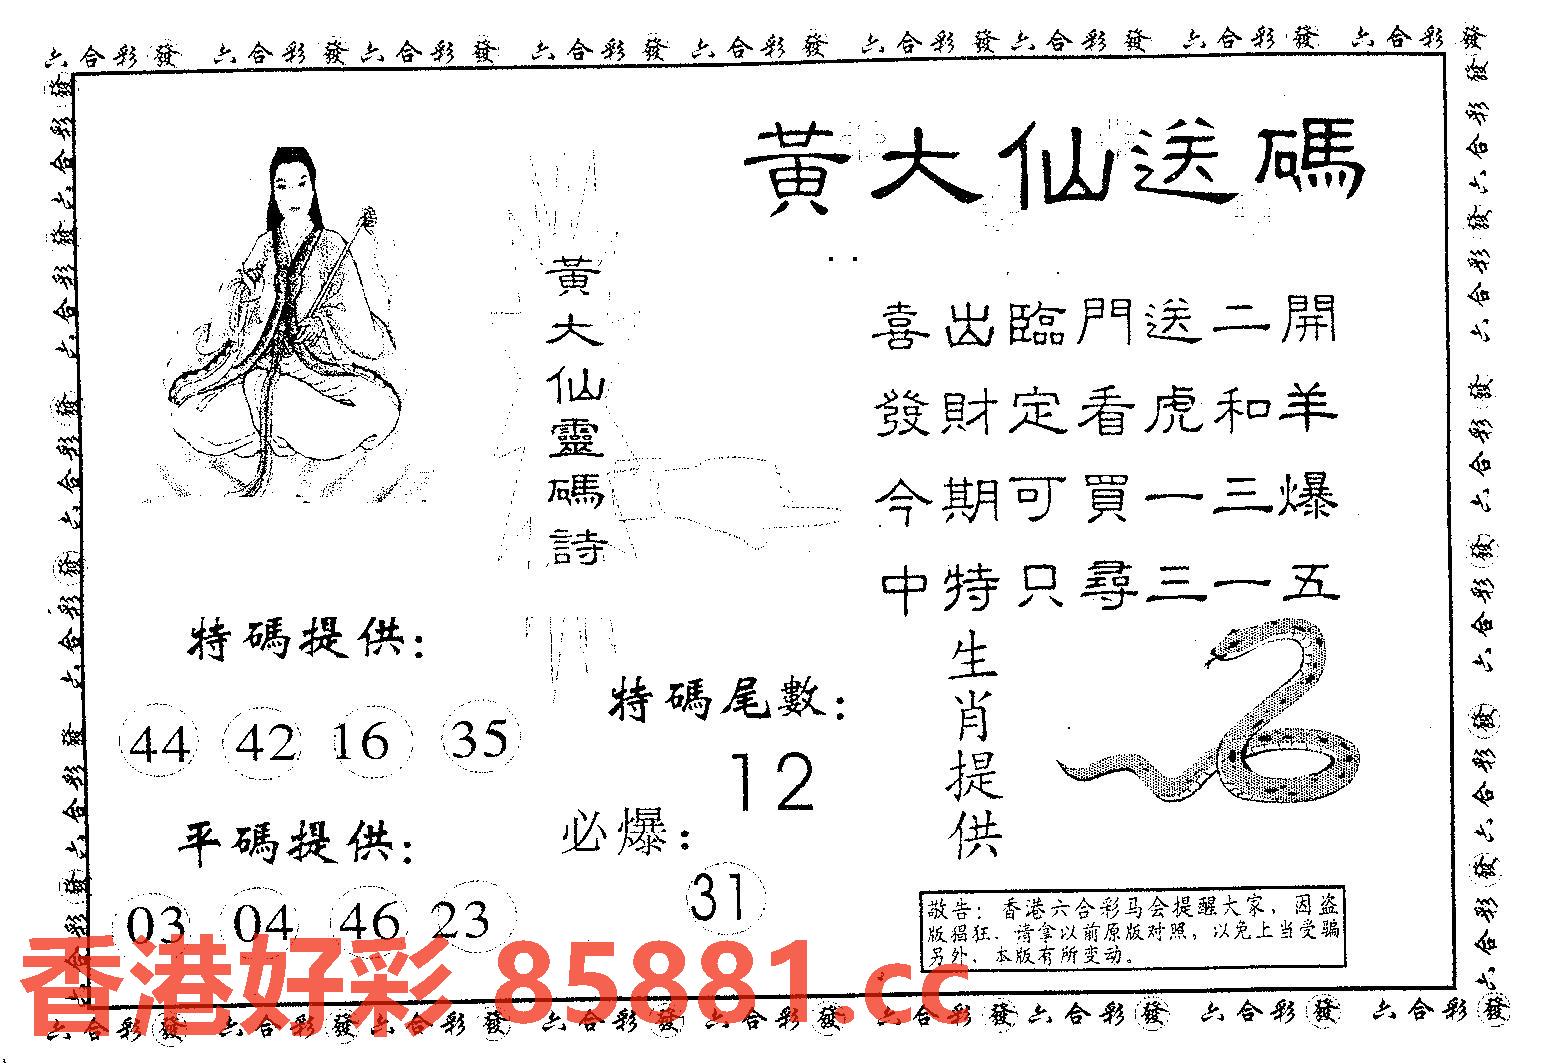 六合彩發 六合彩發六合彩發 六合彩發 六合彩發 六合彩發六合彩發 六合彩發 六合彩發
黃大仙送碼
黃大仙靈碼詩
喜出臨門送二開
發財定看虎和羊
今期可買一三爆
中特只尋三一五
特碼提供：
44 42 16 35
特碼尾數：
12
平碼提供：
03 04 46 23
必爆：
31
生肖提供
敬告：香港六合彩马会提醒大家，因盗
版猖狂．请拿以前原版对照，以免上当受骗
另外．本版有所变动。
香港好彩 85881.cc
六合彩發 六合彩發六合彩發 六合彩發 六合彩發 六合彩發六合彩發 六合彩發 六合彩發